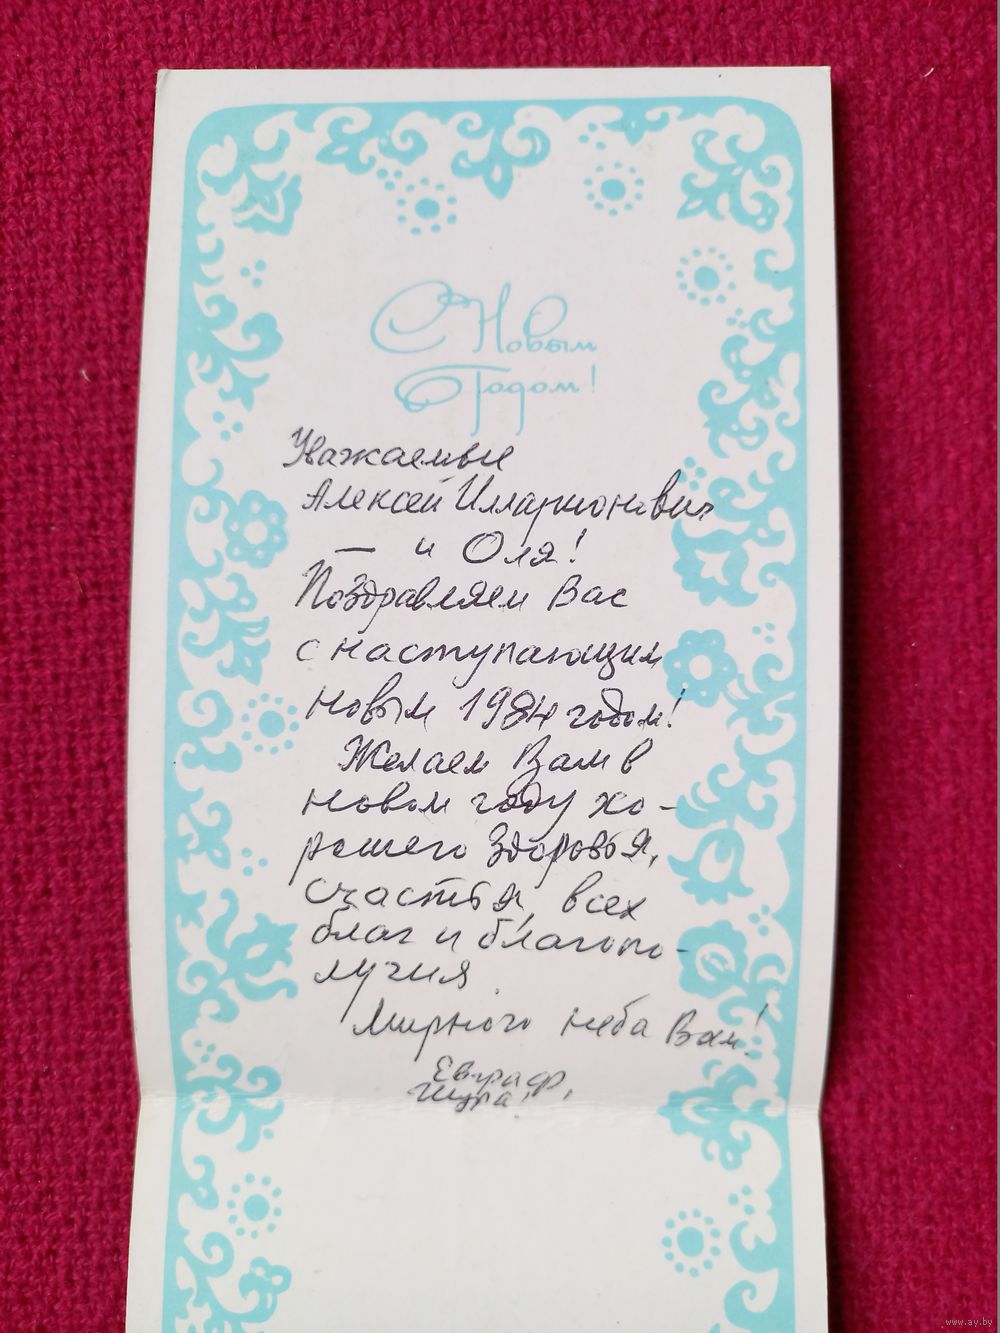 С Новым
Годом!
Уважаемые
Алексей Илларионович
— и Оля!
Поздравляем Вас
с наступающим
новым 1984 годом!
Желаем Вам в
новом году хо-
рошего здоровья,
счастья, всех
благ и благопо-
лучия
Мирного неба Вам!
Евграф,
Шура!
www.ay.by